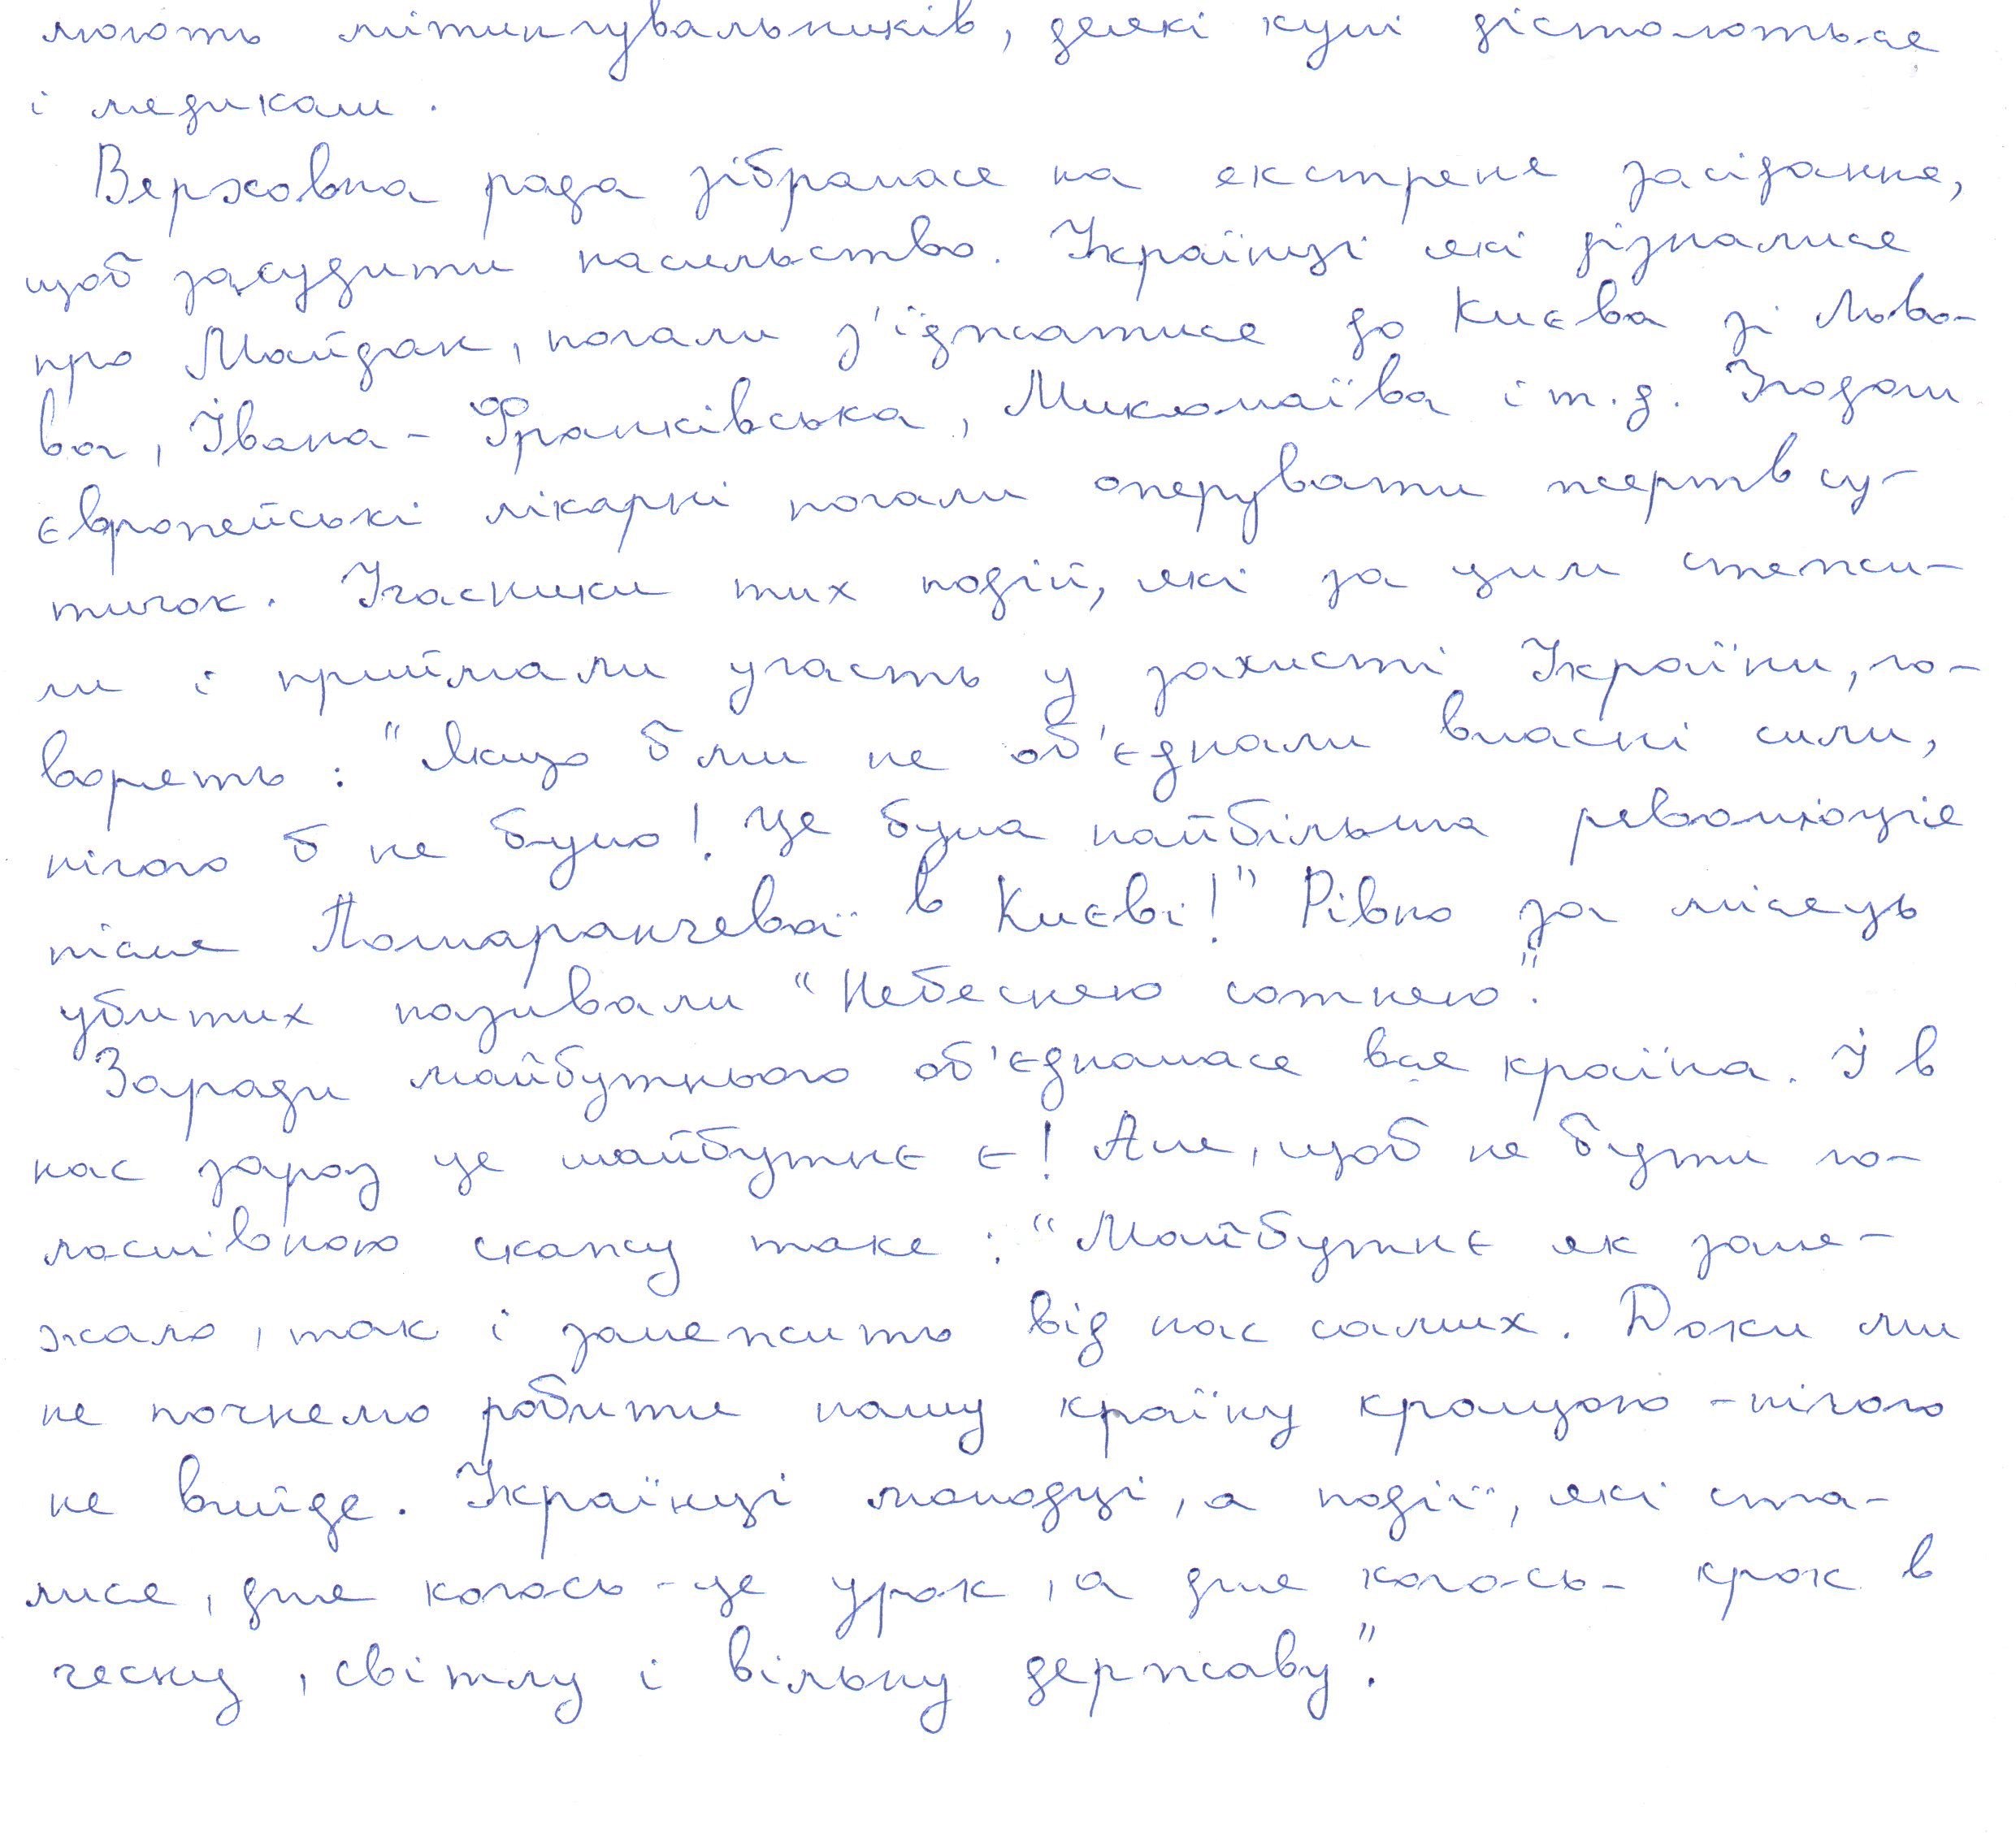 мають мітингувальників, деякі кулі дістаються
і медикам.
Верховна рада зібралася на екстрене засідання,
щоб засудити насильство. Українці які дізналися
про Майдан, почали з'їджатися до Києва зі Льво-
ва, Івана-Франківська, Миколаїва і т.д. Згодом
європейські лікарні почали оперувати жертв су-
тичок. Учасники тих подій, які за цим стежи-
ли і приймали участь у захисті України, го-
ворять: "Якщо б ми не об'єднали власні сили,
нічого б не було! Це була найбільша революція
після Помаранчевої в Києві!" Рівно за місяць
убитих називали "Небесною сотнею".
Заради майбутнього об'єдналася вся країна. І в
нас зараз це майбутнє є! Але, щоб не бути го-
лослівною скажу таке: "Майбутнє як зале-
жало, так і залежить від нас самих. Доки ми
не почнемо робити нашу країну кращою - нічого
не вийде. Українці молодці, а події, які ста-
лися, для когось - це урок, а для когось - крок в
чесну, світлу і вільну державу".